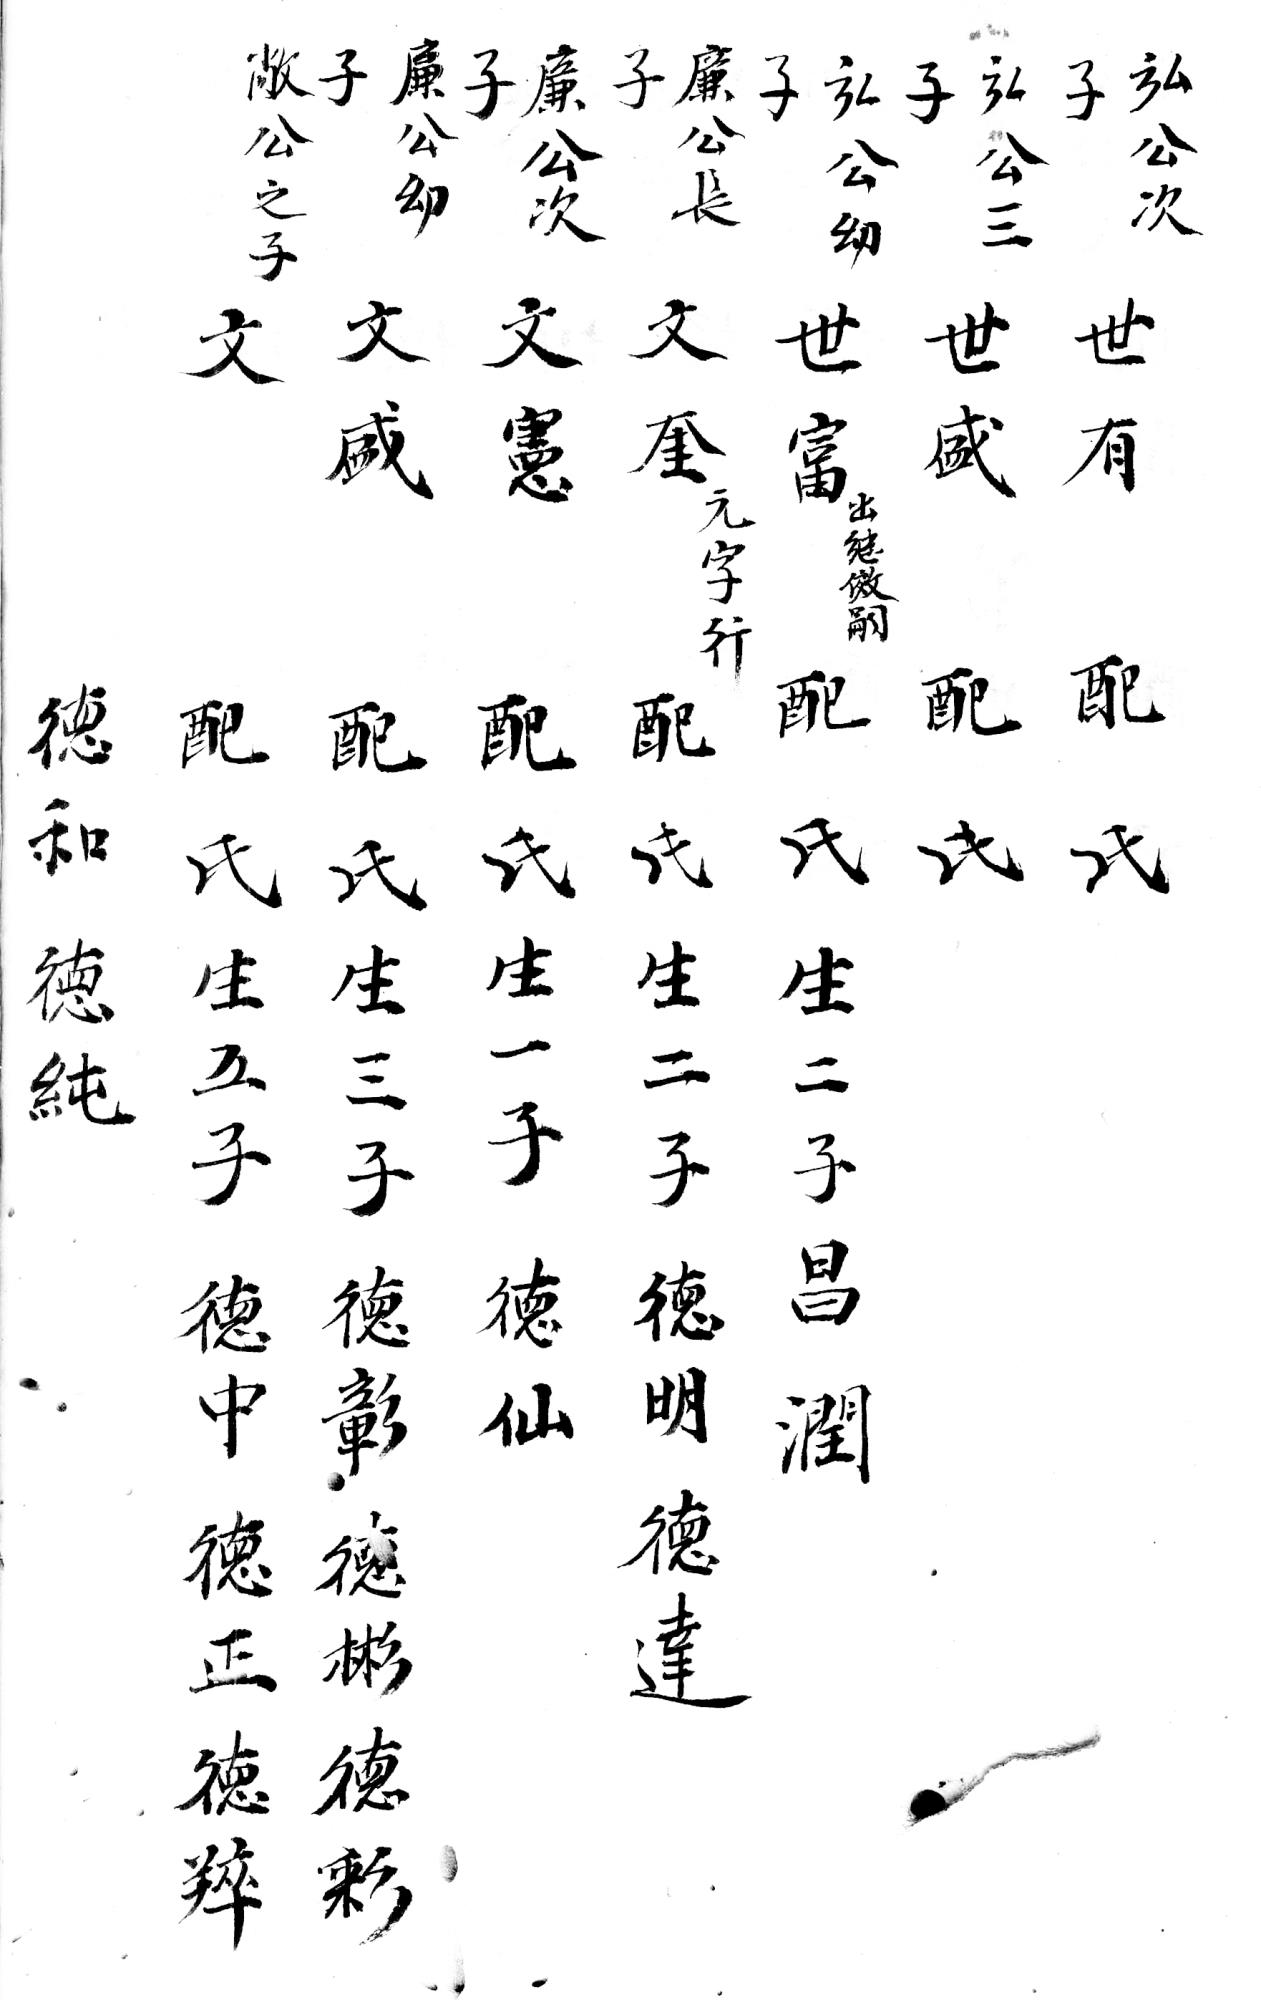 弘公次子 世有 配 氏
弘公三子 世盛 配 氏
弘公幼子 世富 出継傲嗣 配 氏 生二子 昌 潤
廉公長子 文奎 元字行 配 氏 生二子 德明 德達
廉公次子 文憲 配 氏 生一子 德仙
廉公幼子 文盛 配 氏 生三子 德彰 德彬 德彩
敞公之子 文 配 氏 生五子 德中 德正 德粹
德和 德純